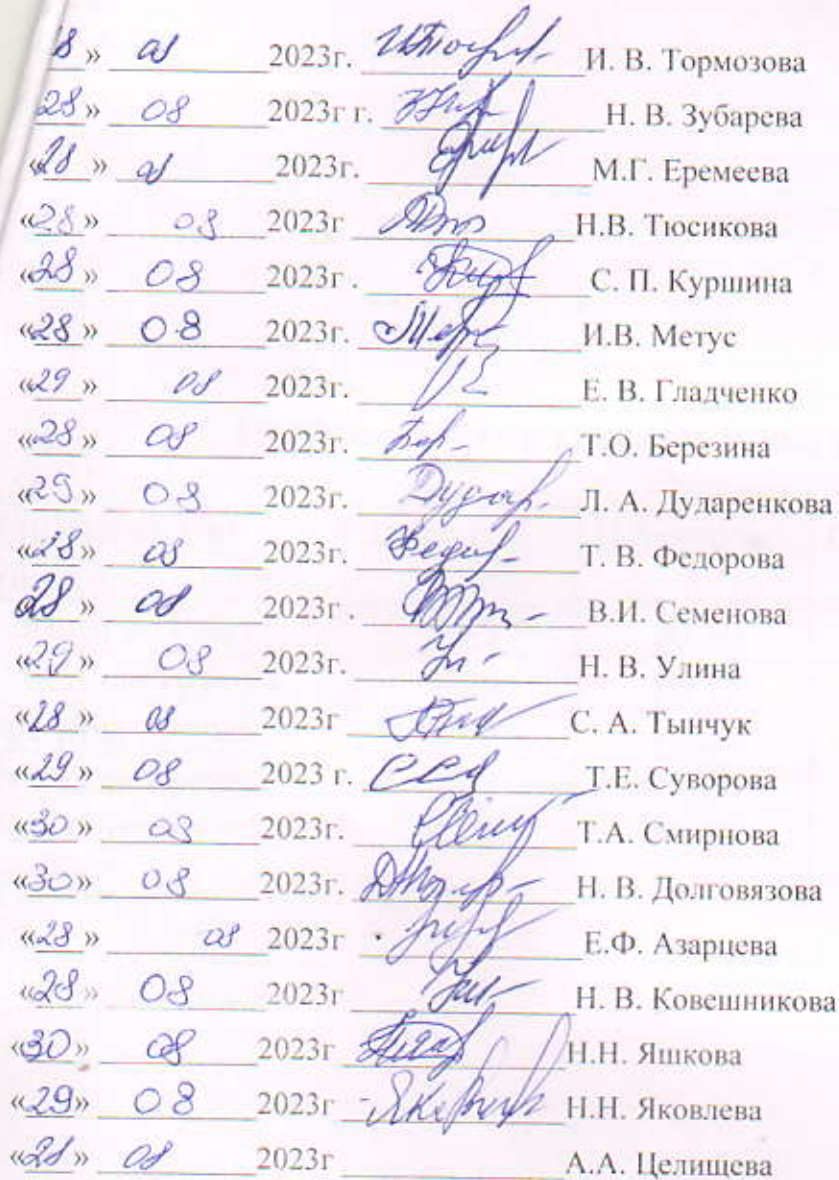 28 » 08 2023г. И. В. Тормозова
«28» 08 2023г г. Н. В. Зубарева
«28 » 08 2023г. М.Г. Еремеева
«28 » 08 2023г Н.В. Тюсикова
«28 » 08 2023г . С. П. Куршина
«28 » 08 2023г. И.В. Метус
«29 » 08 2023г. Е. В. Гладченко
«28 » 08 2023г. Т.О. Березина
«29 » 08 2023г. Дудар. Л. А. Дударенкова
«28 » 08 2023г. Федор Т. В. Федорова
28 » 08 2023г . В.И. Семенова
«29 » 08 2023г. Ул Н. В. Улина
«28 » 08 2023г С. А. Тынчук
«29 » 08 2023 г. Т.Е. Суворова
«30 » 08 2023г. Т.А. Смирнова
«30» 08 2023г. Н. В. Долговязова
«28 » 08 2023г . Е.Ф. Азарцева
«28 » 08 2023г Н. В. Ковешникова
«30 » 08 2023г Н.Н. Яшкова
«29» 08 2023г Н.Н. Яковлева
«28 » 08 2023г А.А. Целищева